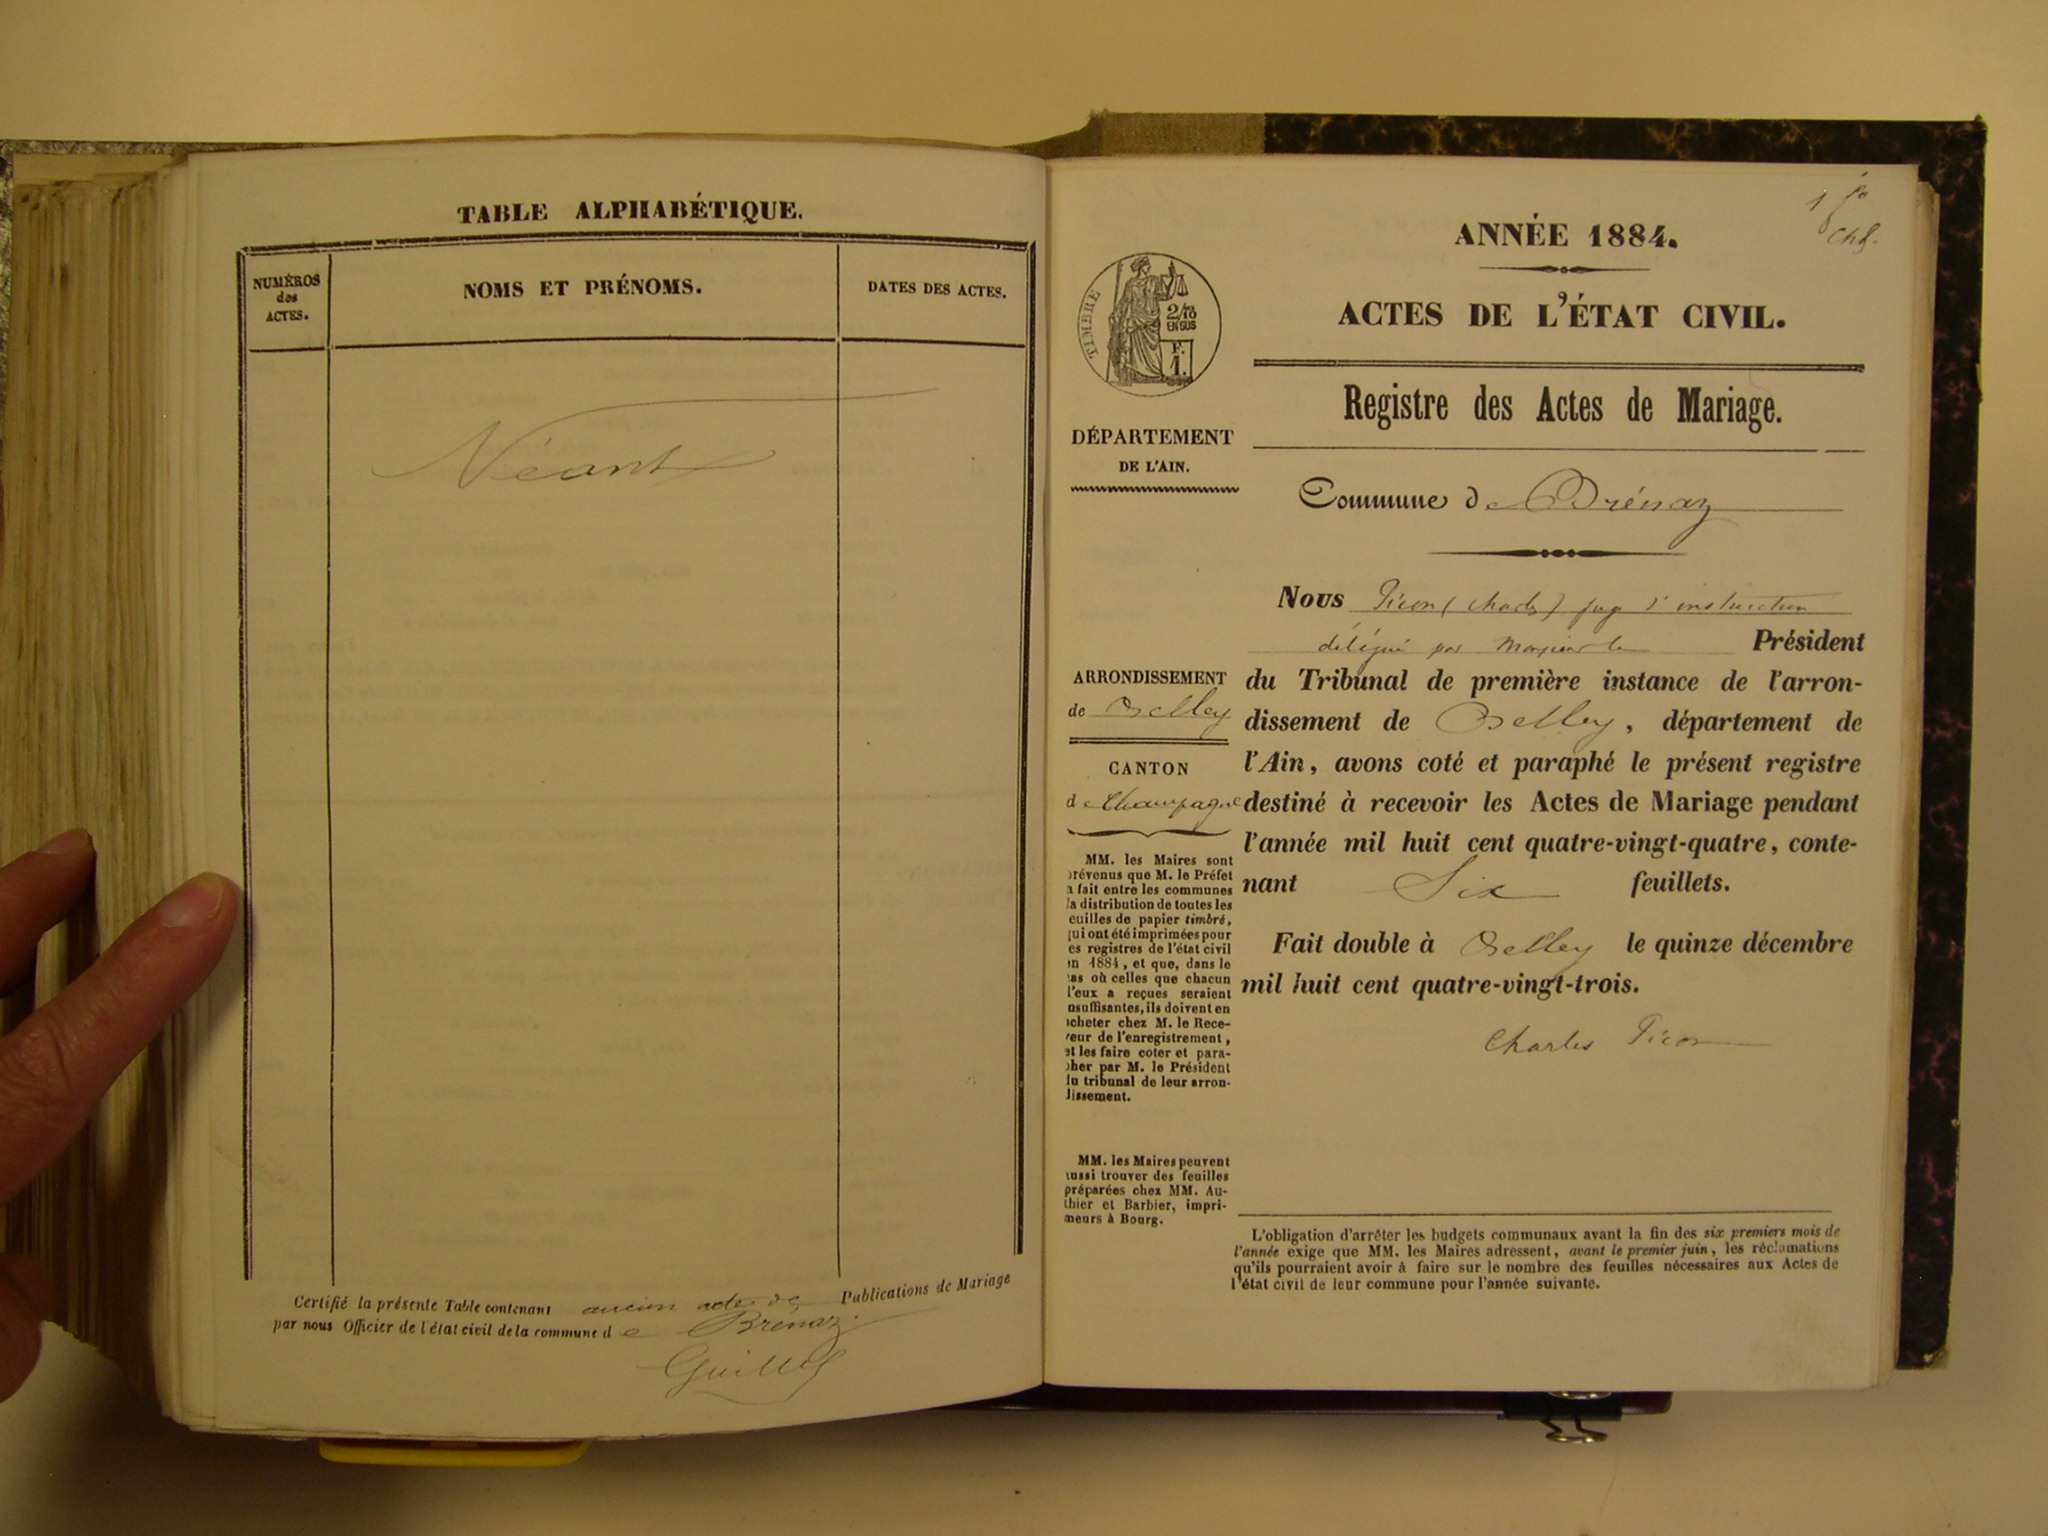 TABLE ALPHABÉTIQUE.
NUMÉROS
des
ACTES.
NOMS ET PRÉNOMS.
DATES DES ACTES.
Néant
Certifié la présente Table contenant aucun acte de Publications de Mariage
par nous Officier de l'état civil de la commune de Brénaz.
ANNÉE 1884.
ACTES DE L'ÉTAT CIVIL.
TIMBRE
2/10
EN SUS
F.
1.
Registre des Actes de Mariage.
DÉPARTEMENT
DE L'AIN.
Commune de Brénaz
Nous Picon (Charles) juge d'instruction
délégué par Monsieur le Président
ARRONDISSEMENT
de Belley
CANTON
de Champagne
du Tribunal de première instance de l'arron-
dissement de Belley, département de
l'Ain, avons coté et paraphé le présent registre
destiné à recevoir les Actes de Mariage pendant
l'année mil huit cent quatre-vingt-quatre, conte-
nant Six feuillets.
Fait double à Belley le quinze décembre
mil huit cent quatre-vingt-trois.
Charles Picon
MM. les Maires sont
révenus que M. le Préfet
a fait entre les communes
la distribution de toutes les
euilles de papier timbré,
qui ont été imprimées pour
es registres de l'état civil
en 1884, et que, dans le
cas où celles que chacun
d'eux a reçues seraient
nsuffisantes, ils doivent en
acheter chez M. le Rece-
veur de l'enregistrement,
et les faire coter et para-
pher par M. le Président
du tribunal de leur arron-
dissement.
MM. les Maires peuvent
aussi trouver des feuilles
préparées chez MM. Au-
thier et Barbier, impri-
meurs à Bourg.
L'obligation d'arrêter les budgets communaux avant la fin des six premiers mois de
l'année exige que MM. les Maires adressent, avant le premier juin, les réclamations
qu'ils pourraient avoir à faire sur le nombre des feuilles nécessaires aux Actes de
l'état civil de leur commune pour l'année suivante.